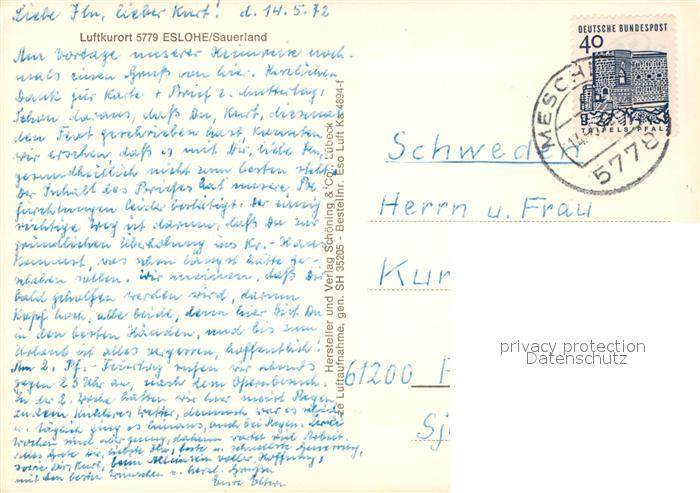 Liebe Ilu, lieber Kurt! d. 14.5.72
Luftkurort 5779 ESLOHE/Sauerland
Am Vortage unserer Heimreise noch-
mals einen Gruß von hier. Herzlichen
Dank für Karte + Brief z. Muttertag!
Schon daraus, daß Du, Kurt, diesmal
den Text geschrieben hast, konnten
wir ersehen, daß es mit Dir, liebe
gesundheitlich nicht zum besten steht.
Der Inhalt des Briefes hat unsere Be-
fürchtungen leider bestätigt. Der einzig
richtige Weg ist darum, daß Du zur
gründlichen Überholung ins Kr.-Haus
kommst, was schon längst hätte ge-
schehen sollen. Wir meinen, daß Dir
bald geholfen werden wird, darum
Kopf hoch, alle beide, denn hier bist Du
in den besten Händen, und bis zum
Urlaub ist alles vergessen, hoffentlich!
Am 2. Pf.-Feiertag rufen wir abends
gegen 23 Uhr an, nach dem Opernbesuch.
In der 2. Woche hatten wir hier meist Regen,
zudem kühleres Wetter, dennoch war es schön
u. täglich ging es hinaus, auch bei Regen.
Wochen sind aber genug, daheim wartet viel Arbeit.
Alles Gute Dir, liebste beste u. schnellste Genesung,
sowie Dir, Kurt, beim Alleinsein voller Hoffnung,
mit den besten Wünschen u. herzl. Grüßen
Eure Eltern
Hersteller und Verlag Schöning & Co., Lübeck
ze Luftaufnahme, gen. SH 35205 - Bestellnr. Eso Luft Ks 4894-f
DEUTSCHE BUNDESPOST
40
TRIFELS/PFALZ
MESCH
5778
Schweden
Herrn u. Frau
Kur
61200
Sj
privacy protection
Datenschutz